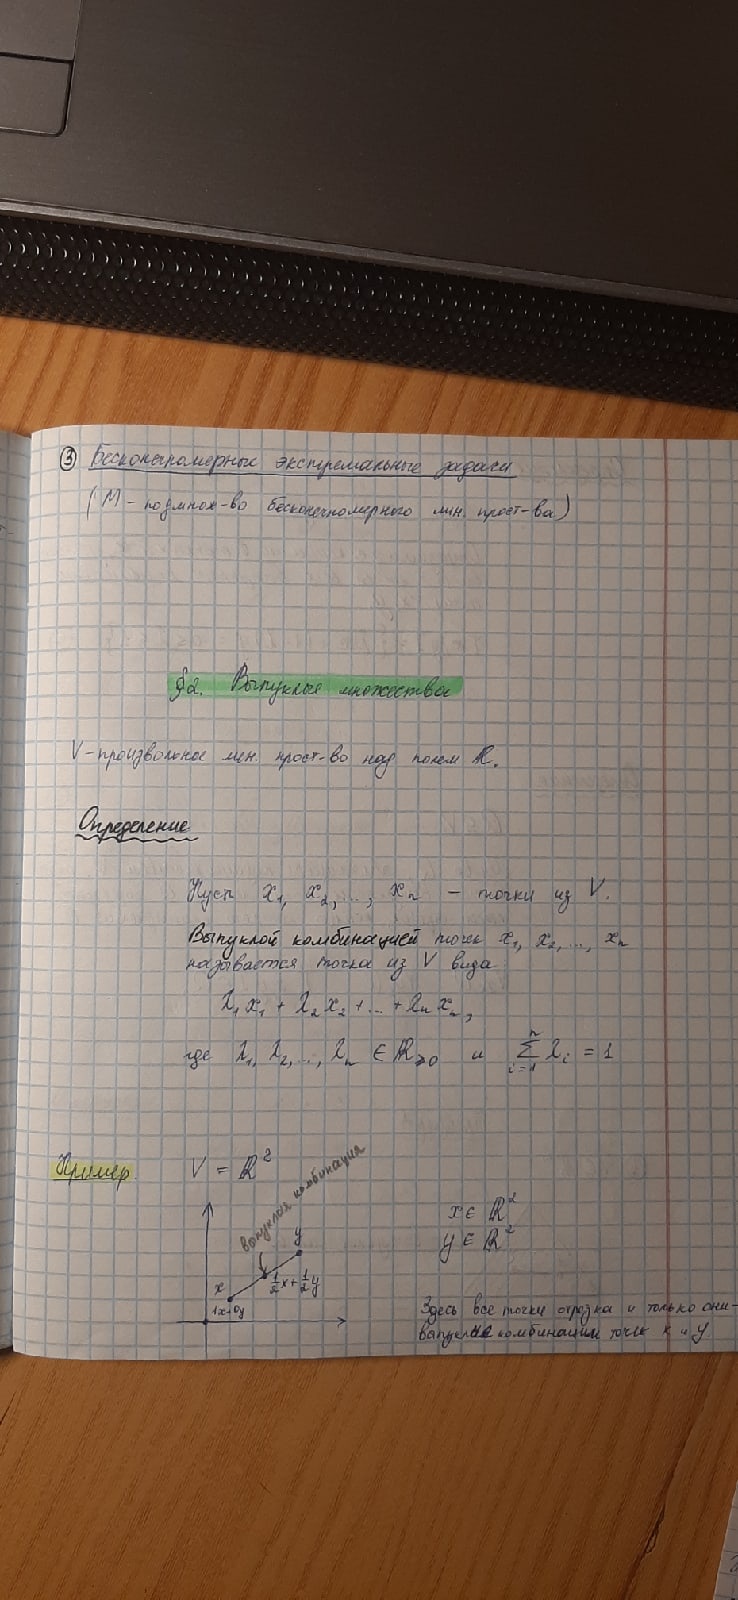 ③ Бесконечномерные экстремальные задачи
(M - подмнож-во бесконечномерного лин. прост-ва)
§2. Выпуклые множества
V - произвольное лин. прост-во над полем ℝ.
Определение
Пусть x₁, x₂, ..., xₙ — точки из V.
Выпуклой комбинацией точек x₁, x₂, ..., xₙ
называется точка из V вида
λ₁x₁ + λ₂x₂ + ... + λₙxₙ,
где λ₁, λ₂, ..., λₙ ∈ ℝ≥0 и ∑ᵢ₌₁ⁿ λᵢ = 1
Пример V = ℝ²
выпуклая комбинация
x ∈ ℝ²
y ∈ ℝ²
y
x
½x + ½y
1x+0y
Здесь все точки отрезка и только они -
выпуклые комбинации точек x и y